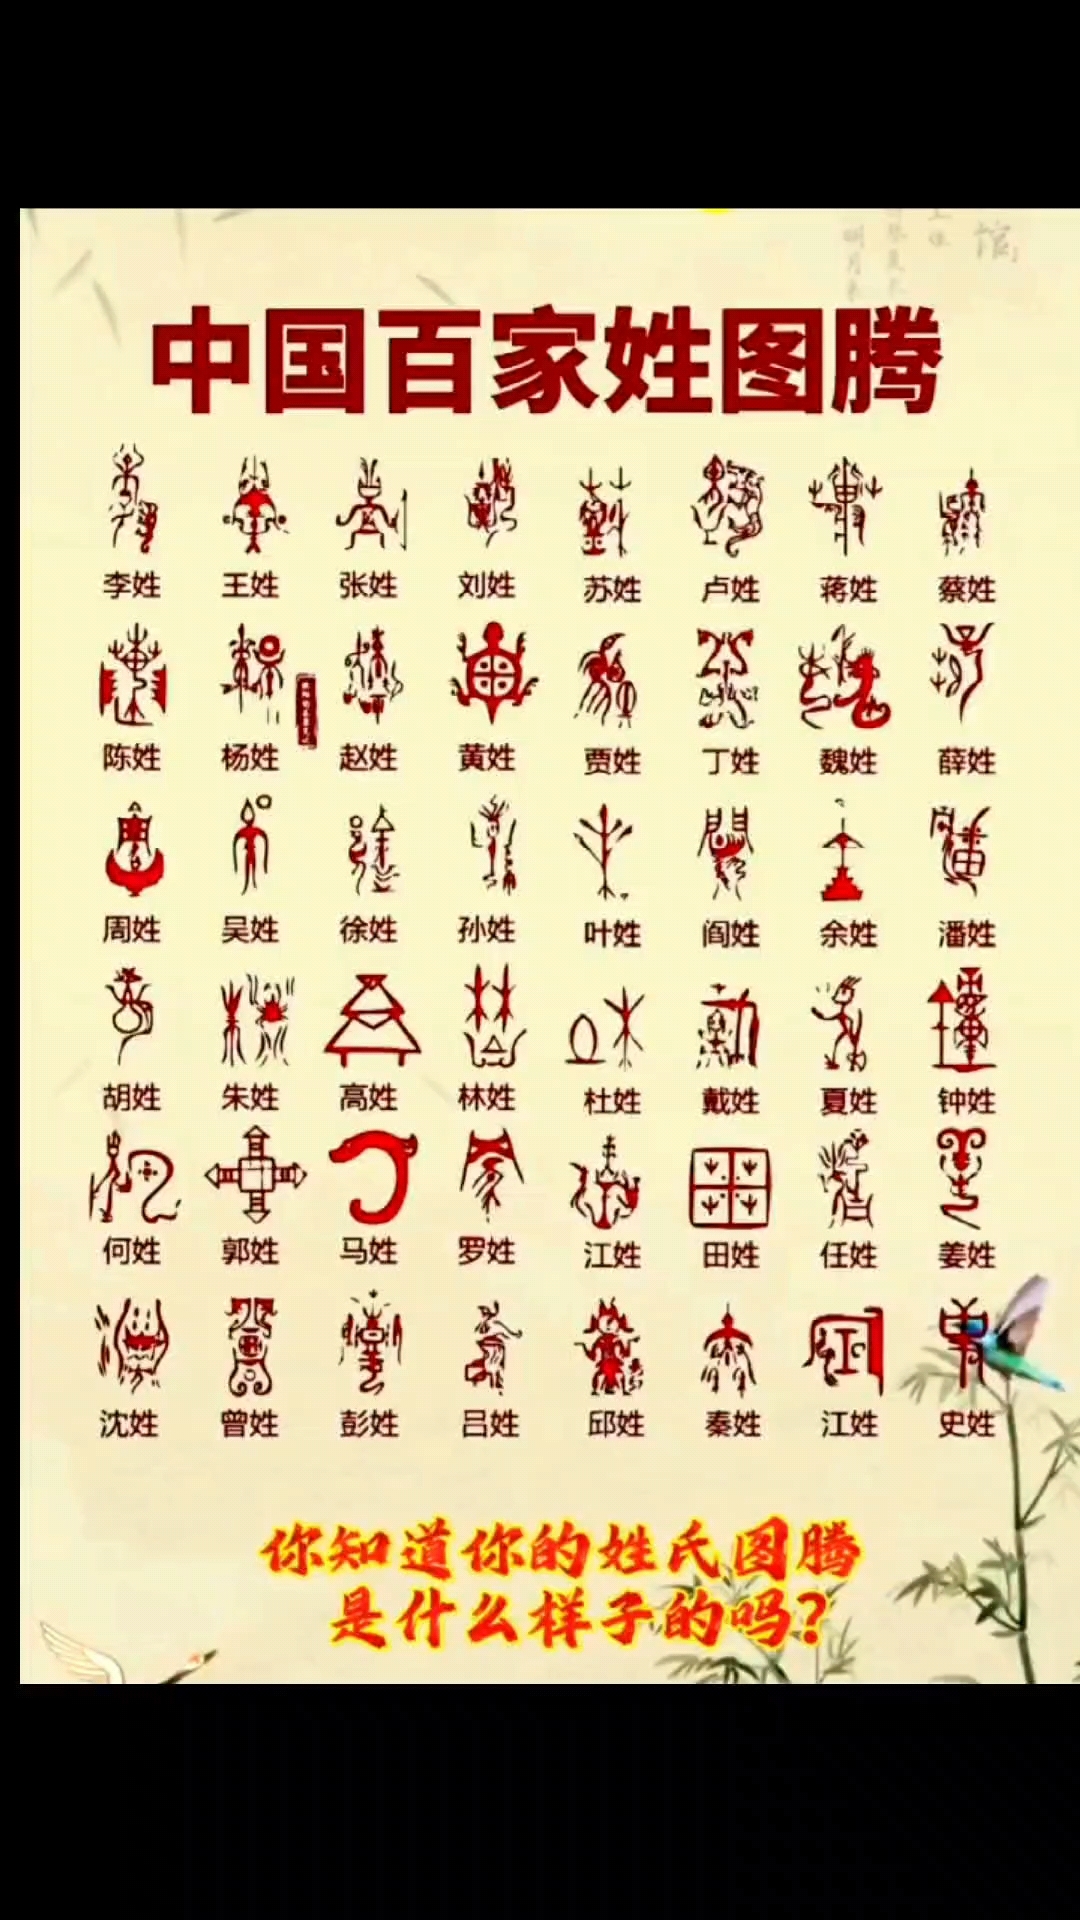 馆
中国百家姓图腾
李姓 王姓 张姓 刘姓 苏姓 卢姓 蒋姓 蔡姓
陈姓 杨姓 赵姓 黄姓 贾姓 丁姓 魏姓 薛姓
周姓 吴姓 徐姓 孙姓 叶姓 阎姓 余姓 潘姓
胡姓 朱姓 高姓 林姓 杜姓 戴姓 夏姓 钟姓
何姓 郭姓 马姓 罗姓 江姓 田姓 任姓 姜姓
沈姓 曾姓 彭姓 吕姓 邱姓 秦姓 江姓 史姓
你知道你的姓氏图腾
是什么样子的吗？